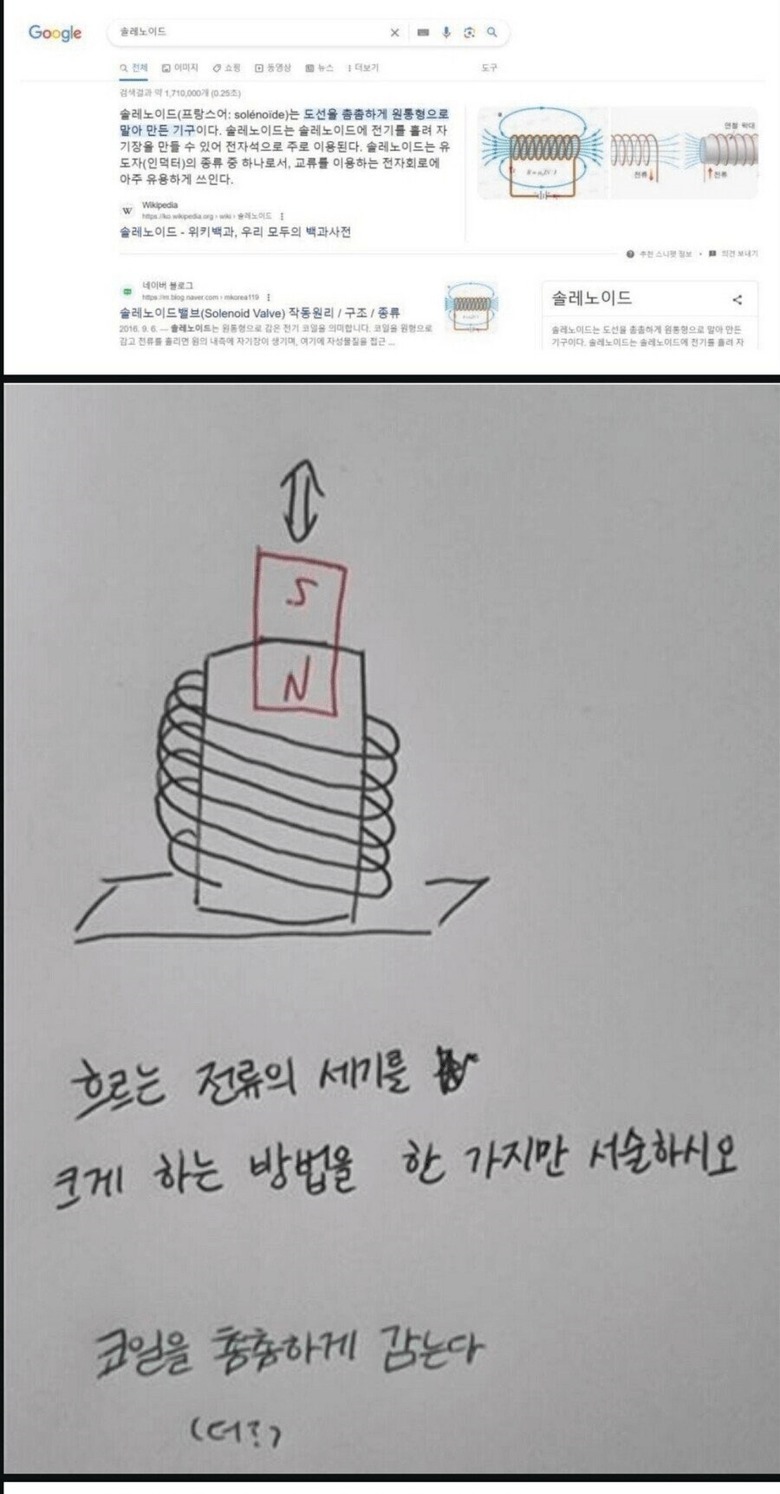 Google
솔레노이드
전체 이미지 쇼핑 동영상 뉴스 더보기 도구
검색결과 약 1,710,000개 (0.25초)
솔레노이드(프랑스어: solénoïde)는 도선을 촘촘하게 원통형으로
말아 만든 기구이다. 솔레노이드는 솔레노이드에 전기를 흘려 자
기장을 만들 수 있어 전자석으로 주로 이용된다. 솔레노이드는 유
도자(인덕터)의 종류 중 하나로서, 교류를 이용하는 전자회로에
아주 유용하게 쓰인다.
전류
전류
W
Wikipedia
https://ko.wikipedia.org › wiki › 솔레노이드
솔레노이드 - 위키백과, 우리 모두의 백과사전
추천 스니펫 정보 • 의견 보내기
네이버 블로그
https://m.blog.naver.com › mkorea119
솔레노이드밸브(Solenoid Valve) 작동원리 / 구조 / 종류
2016. 9. 6. — 솔레노이드는 원통형으로 감은 전기 코일을 의미합니다. 코일을 원형으로
감고 전류를 흘리면 원의 내측에 자기장이 생기며, 여기에 자성물질을 접근 ...
솔레노이드
솔레노이드는 도선을 촘촘하게 원통형으로 말아 만든
기구이다. 솔레노이드는 솔레노이드에 전기를 흘려 자
S
N
흐르는 전류의 세기를
크게 하는 방법을 한 가지만 서술하시오
코일을 촘촘하게 감는다
(더?)